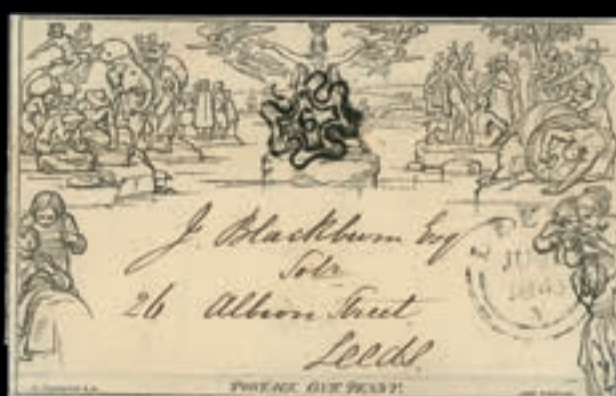 J. Blackburn Esq
Solr
26 Albion Street
Leeds
POSTAGE ONE PENNY.